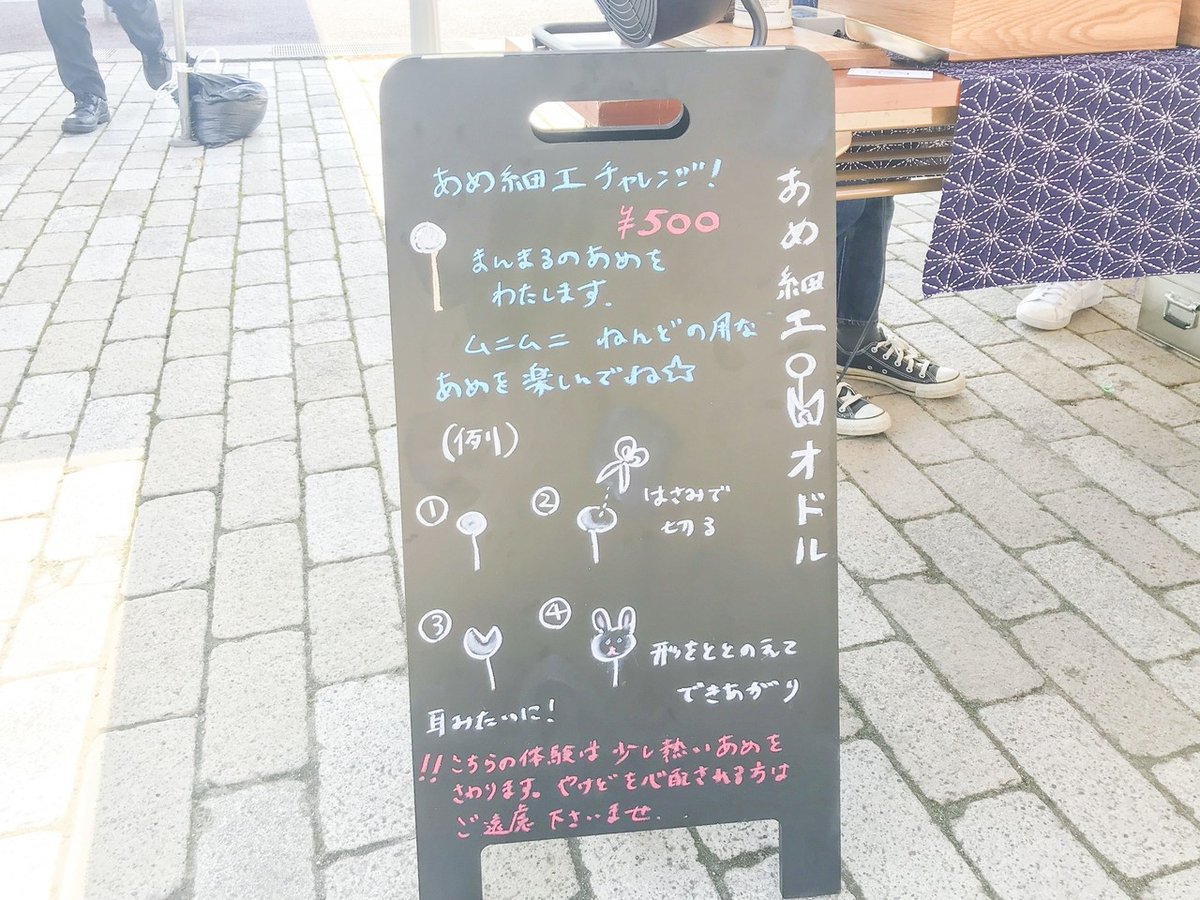 あめ細工チャレンジ!
¥500
まんまるのあめを
わたします.
ムニムニ ねんどの用な
あめを楽しんでね☆
(例)
①
②
はさみで
切る
③
④
形をととのえて
できあがり
耳みたいに!
!!こちらの体験は少し熱いあめを
さわります。やけどを心配される方は
ご遠慮下さいませ.
あめ細工
オドル